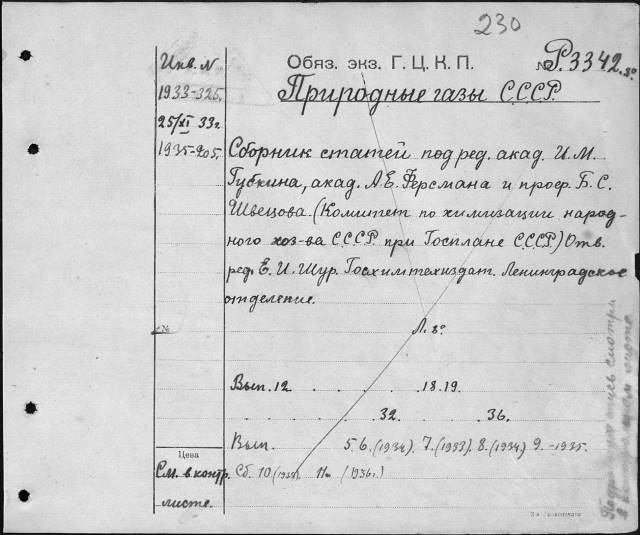 230
Инв. N Обяз. экз. Г. Ц. К. П. № Р.3342.8°
1933-326. Природные газы С.С.С.Р.
25/XI 33г.
1935-205. Сборник статей под ред. акад. И. М.
Губкина, акад. А. Е. Ферсмана и проф. Б. С.
Швецова. (Комитет по химизации народ-
ного хоз-ва С.С.С.Р. при Госплане С.С.С.Р.) Отв.
ред. Е. И. Шур. Госхимтехиздат. Ленинградское
отделение.
№ Л. 8°
Вып. 12 . . . . . 18.19.
. . . . 32. . . . 36.
Цена Вып. 5. 6. (1934). 7. (1933). 8. (1934) 9. -1935.
См. в контр. Сб. 10 11 (1936г.)
листе.
смотри